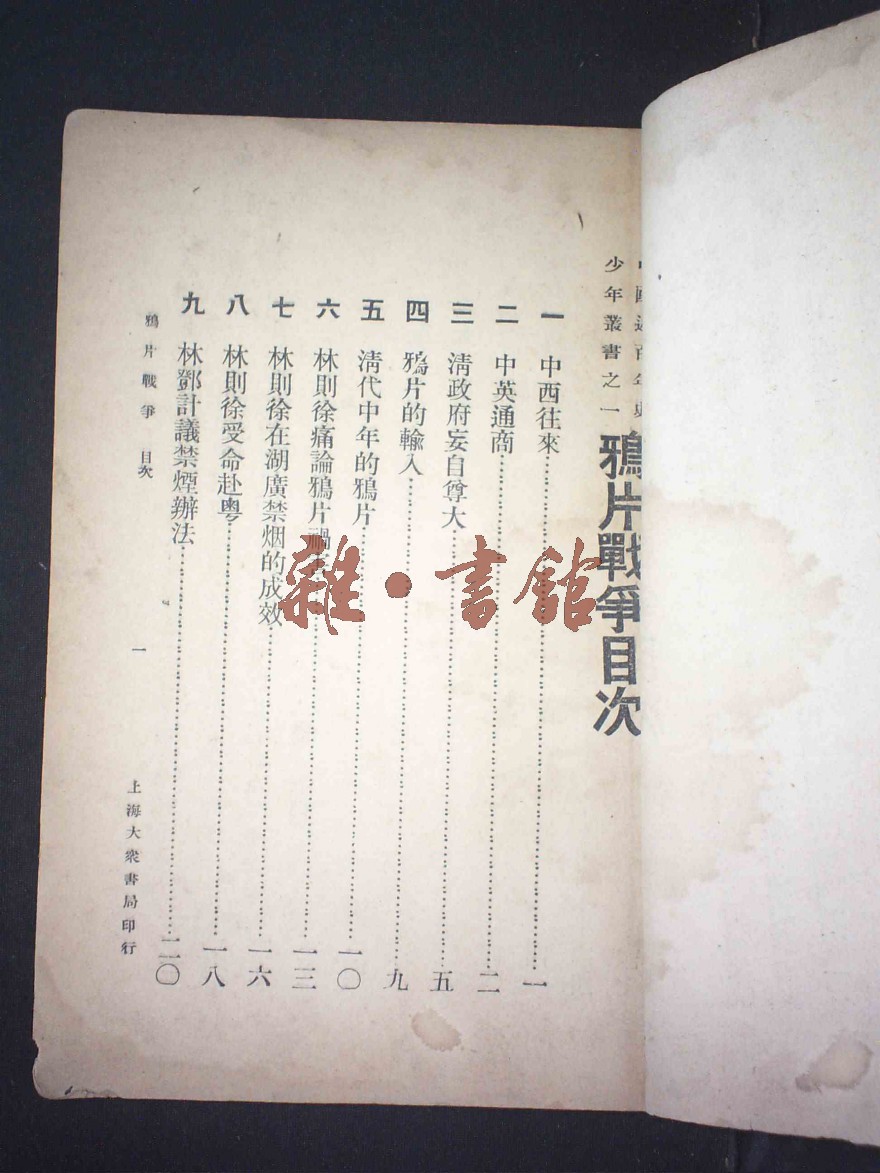 中國近百年史
少年叢書之一
鴉片戰爭目次
一 中西往來…………一
二 中英通商…………二
三 清政府妄自尊大…………五
四 鴉片的輸入…………九
五 清代中年的鴉片…………一〇
六 林則徐痛論鴉片禍…………一三
七 林則徐在湖廣禁烟的成效…………一六
八 林則徐受命赴粵…………一八
九 林鄧計議禁煙辦法…………二〇
鴉片戰爭 目次 一 上海大衆書局印行
雜·書館